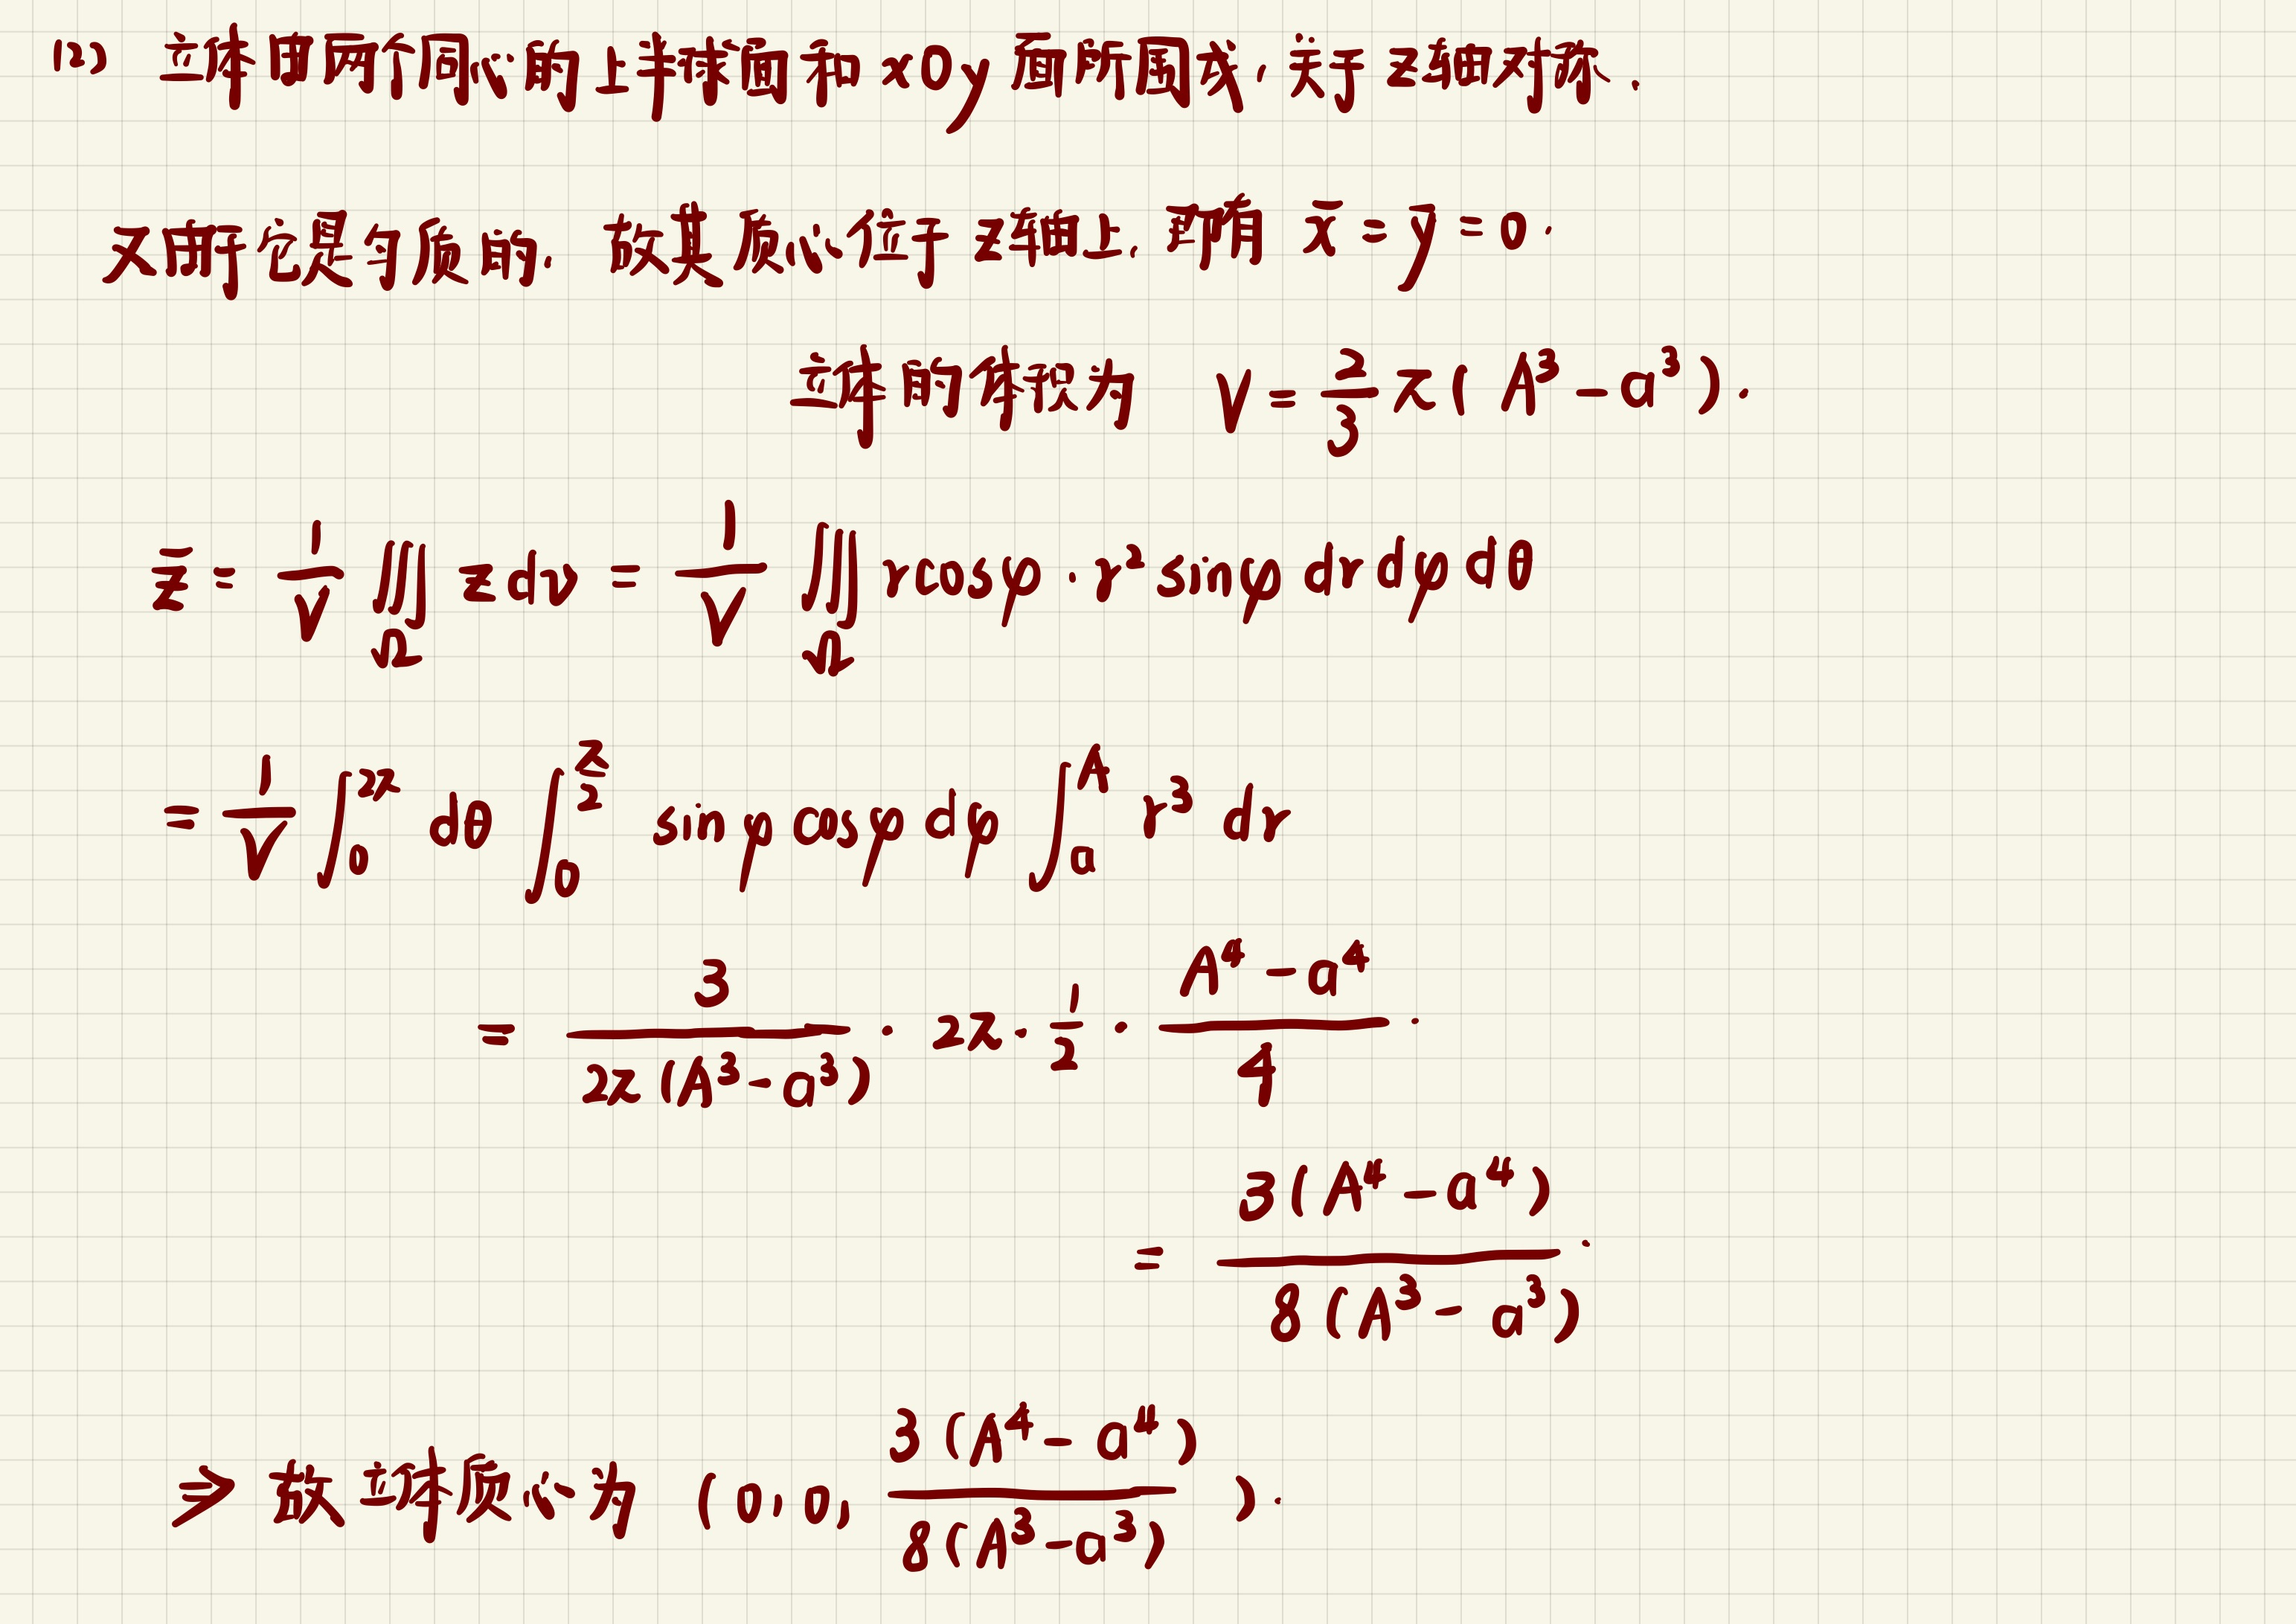 (2) 立体由两个同心的上半球面和 xOy 面所围成,关于 z轴对称.
又由于它是匀质的,故其质心位于 z轴上,即有 x̄ = ȳ = 0.
立体的体积为 V = 2/3 π ( A³ − a³ ).
z̄ = 1/V ∭_Ω z dv = 1/V ∭_Ω r cosφ · r² sinφ dr dφ dθ
= 1/V ∫₀^{2π} dθ ∫₀^{π/2} sinφ cosφ dφ ∫ₐ^A r³ dr
= 3 / 2π(A³ − a³) · 2π · 1/2 · (A⁴ − a⁴)/4 .
= 3(A⁴ − a⁴) / 8(A³ − a³) .
⇒ 故立体质心为 (0, 0, 3(A⁴ − a⁴) / 8(A³ − a³) ).